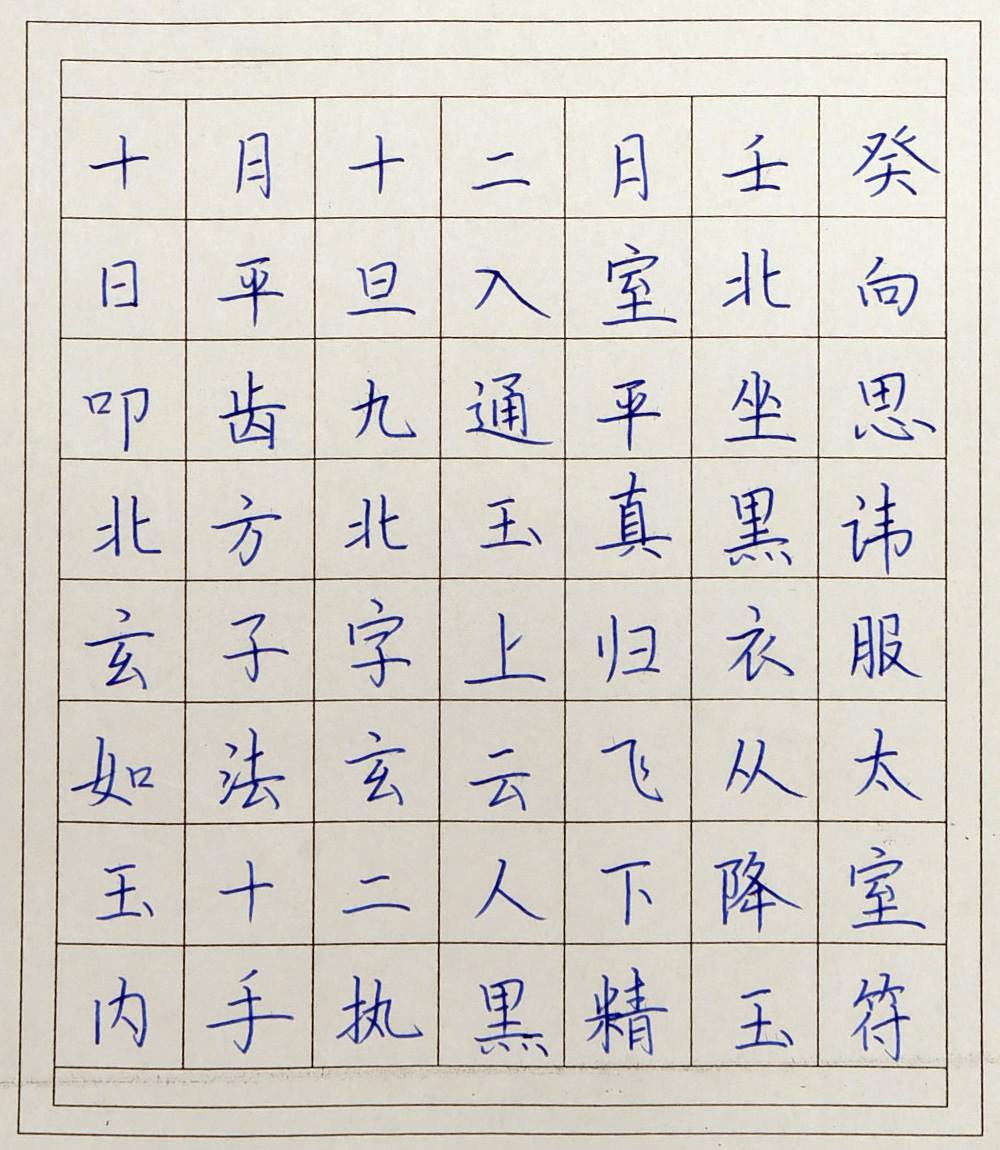 十月十二月壬癸
日平旦入室北向
叩齿九通平坐思
北方北玉真黑讳
玄子字上归衣服
如法玄云飞从太
玉十二人下降室
内手执黑精玉符